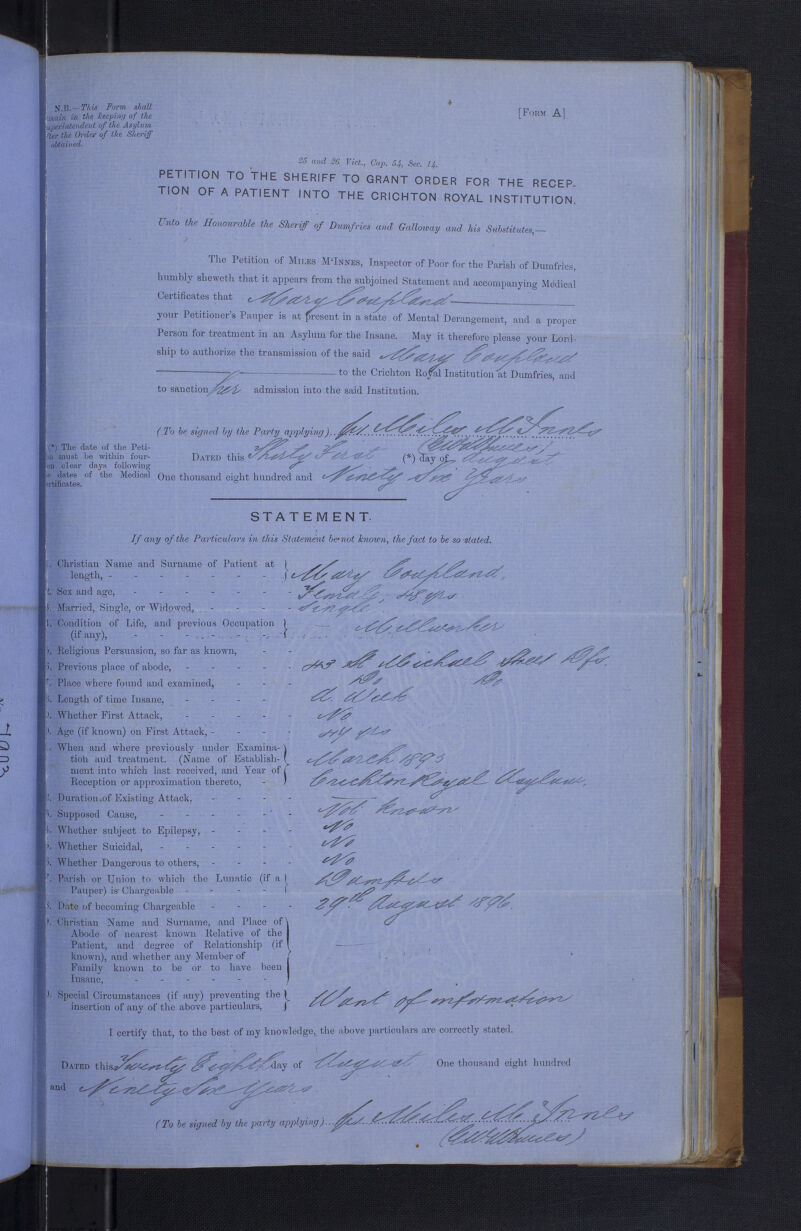 N.B.—This Form shall
in the keeping of the
of the Asylum
the Order of the Sheriff
obtained.
[Form A]
25 and 26 Vict., Cap. 54, Sec. 14.
PETITION TO THE SHERIFF TO GRANT ORDER FOR THE RECEP-
TION OF A PATIENT INTO THE CRICHTON ROYAL INSTITUTION.
Unto the Honourable the Sheriff of Dumfries and Galloway and his Substitutes,—
The Petition of Miles M'Innes, Inspector of Poor for the Parish of Dumfries,
humbly sheweth that it appears from the subjoined Statement and accompanying Medical
Certificates that Mary Coupland
your Petitioner's Pauper is at present in a state of Mental Derangement, and a proper
Person for treatment in an Asylum for the Insane. May it therefore please your Lord-
ship to authorize the transmission of the said Mary Coupland
to the Crichton Royal Institution at Dumfries, and
to sanction her admission into the said Institution.
(To be signed by the Party applying) Miles McInnes
(*) The date of the Peti-
must be within four-
clear days following
dates of the Medical
Dated this Thirty First (*) day of August
One thousand eight hundred and Ninety Six Years
STATEMENT.
If any of the Particulars in this Statement be not known, the fact to be so stated.
Christian Name and Surname of Patient at
length, - Mary Coupland.
Sex and age, - Female, 48 yrs
Married, Single, or Widowed, - Single
Condition of Life, and previous Occupation
(if any), - Millworker
Religious Persuasion, so far as known, -
Previous place of abode, - 43 St Michael Street Dfs.
Place where found and examined, - Do Do
Length of time Insane, - A Week
Whether First Attack, - No
Age (if known) on First Attack, - 44 yrs
When and where previously under Examina-
tion and treatment. (Name of Establish-
ment into which last received, and Year of
Reception or approximation thereto, - March 1893
Crichton Royal Asylum.
Duration of Existing Attack, -
Supposed Cause, - Not known
Whether subject to Epilepsy, - No
Whether Suicidal, - No
Whether Dangerous to others, - No
Parish or Union to which the Lunatic (if a
Pauper) is Chargeable - Dumfries
Date of becoming Chargeable - 29th August 1896
Christian Name and Surname, and Place of
Abode of nearest known Relative of the
Patient, and degree of Relationship (if
known), and whether any Member of
Family known to be or to have been
Insane, -
Special Circumstances (if any) preventing the
insertion of any of the above particulars, Want of information
I certify that, to the best of my knowledge, the above particulars are correctly stated.
Dated this Twenty Eighth day of August One thousand eight hundred
and Ninety Six Years
(To be signed by the party applying) Miles McInnes